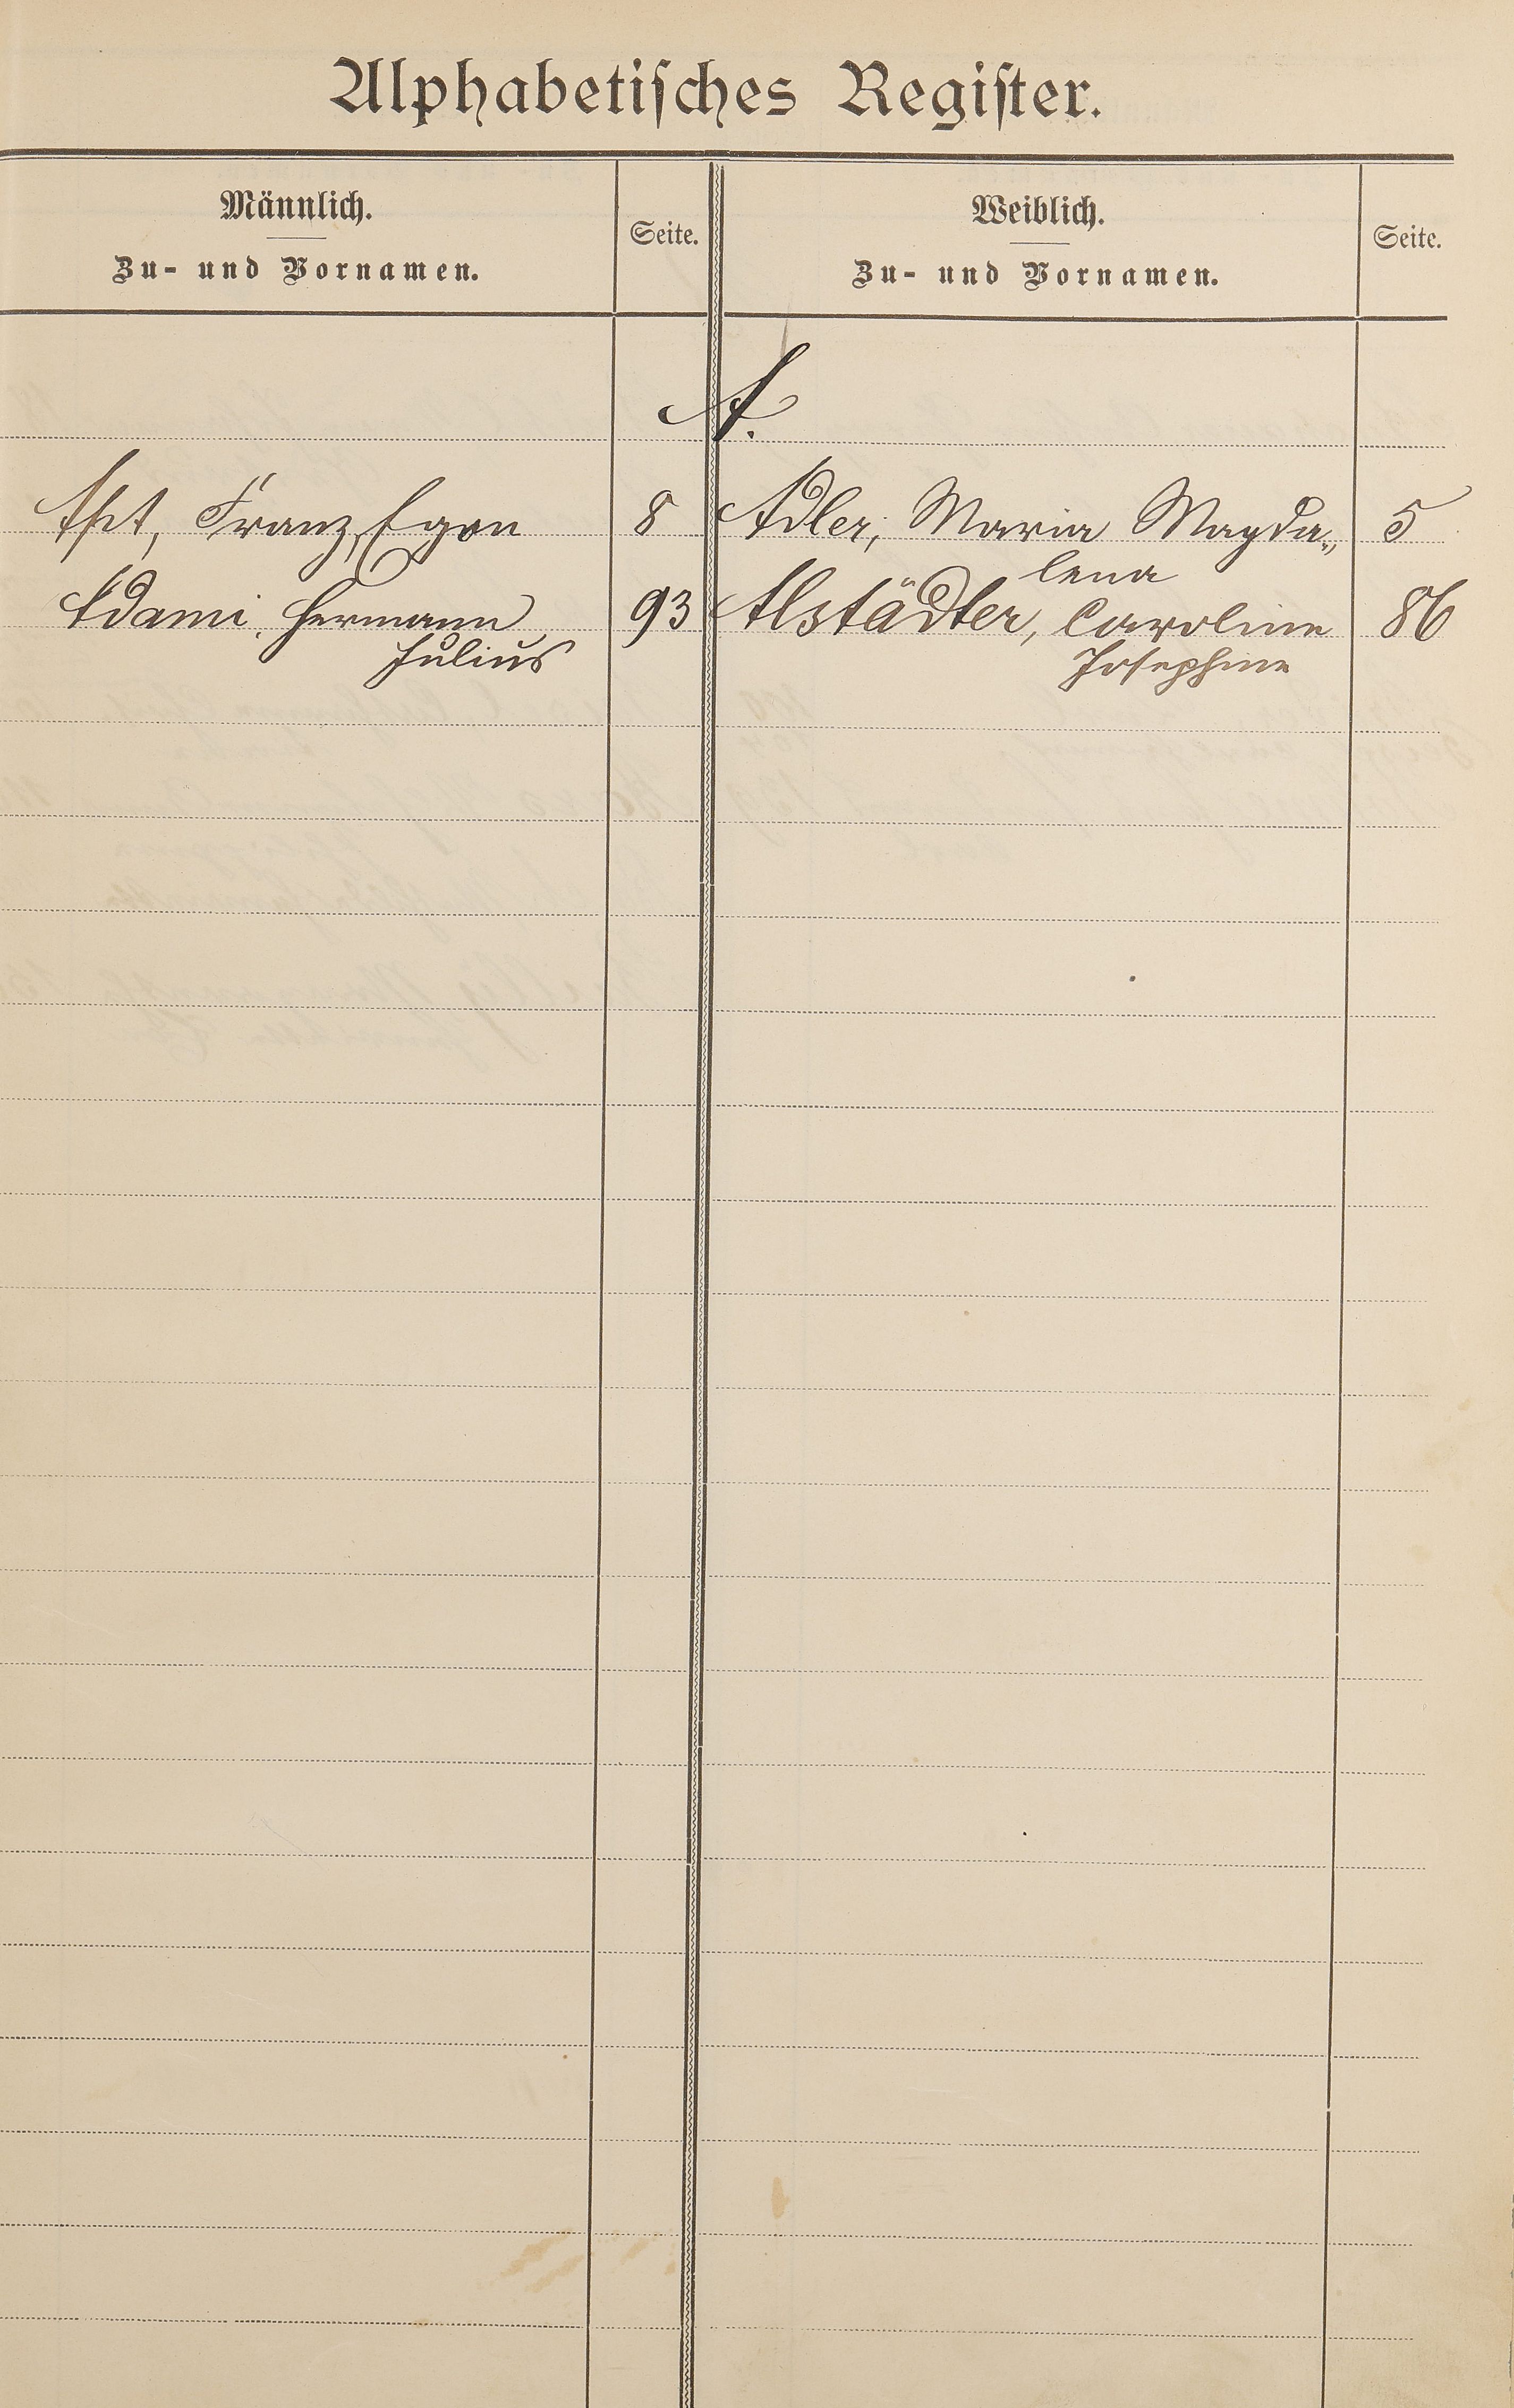 Alphabetiſches Regiſter.
Männlich.
Zu- und Vornamen.
Seite.
Weiblich.
Zu- und Vornamen.
Seite.
A.
Apt, Franz, Egon 8
Adami, Hermann 93
Julius
Adler, Maria Magda„ 5
lena
Alstädter, Caroline 86
Josephine